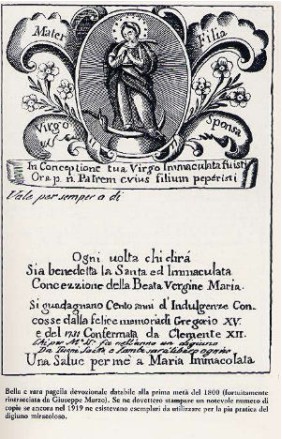 Mater
Filia
Virgo
Sponsa
In Conceptione tua Virgo Immaculata fuisti
Ora p. n. Patrem cvius filium peperisti
Vale per sempre a di
Ogni uolta chi dirá
Sia benedetta la Santa ed Immaculata
Concezzione della Beata Vergine Maria.
Si guadagnano Cento anni d'Indulgenze Con,
cosse dalla felice memoria di Gregorio XV.
e del 1731 Confermata da Clemente XII.
Una Salue per me a Maria Immacolata
Bella e rara pagella devozionale databile alla prima metà del 1800 (fortuitamente
rintracciata da Giuseppe Marzo). Se ne dovettero stampare un notevole numero di
copie se ancora nel 1919 ne esistevano esemplari da utilizzare per la pia pratica del
digiuno miracoloso.